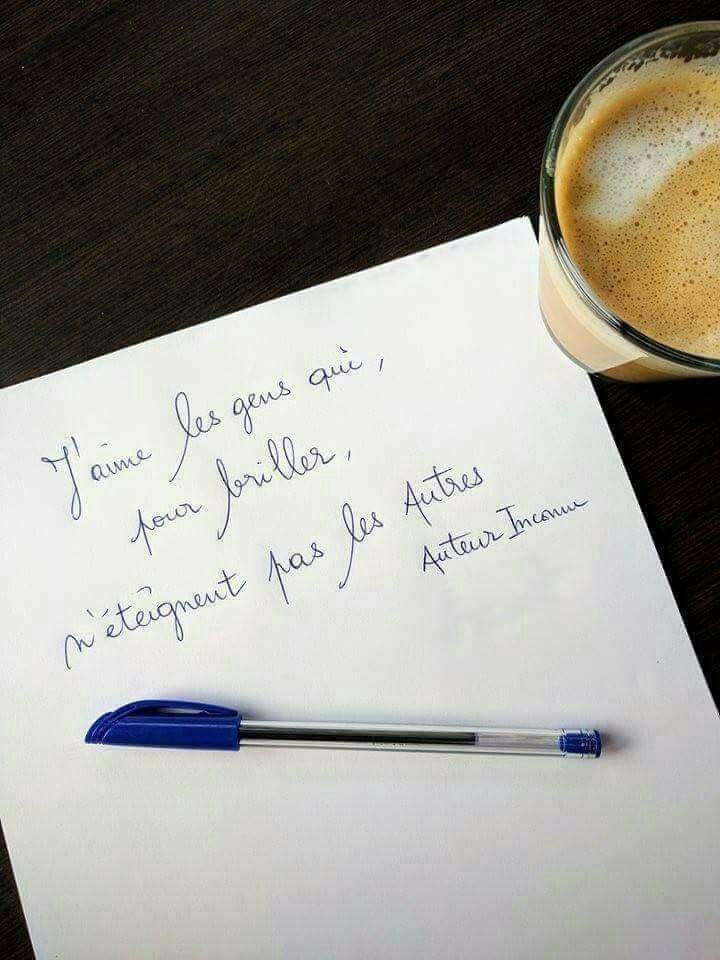 J'aime les gens qui,
pour briller,
n'éteignent pas les Autres
Auteur Inconnu